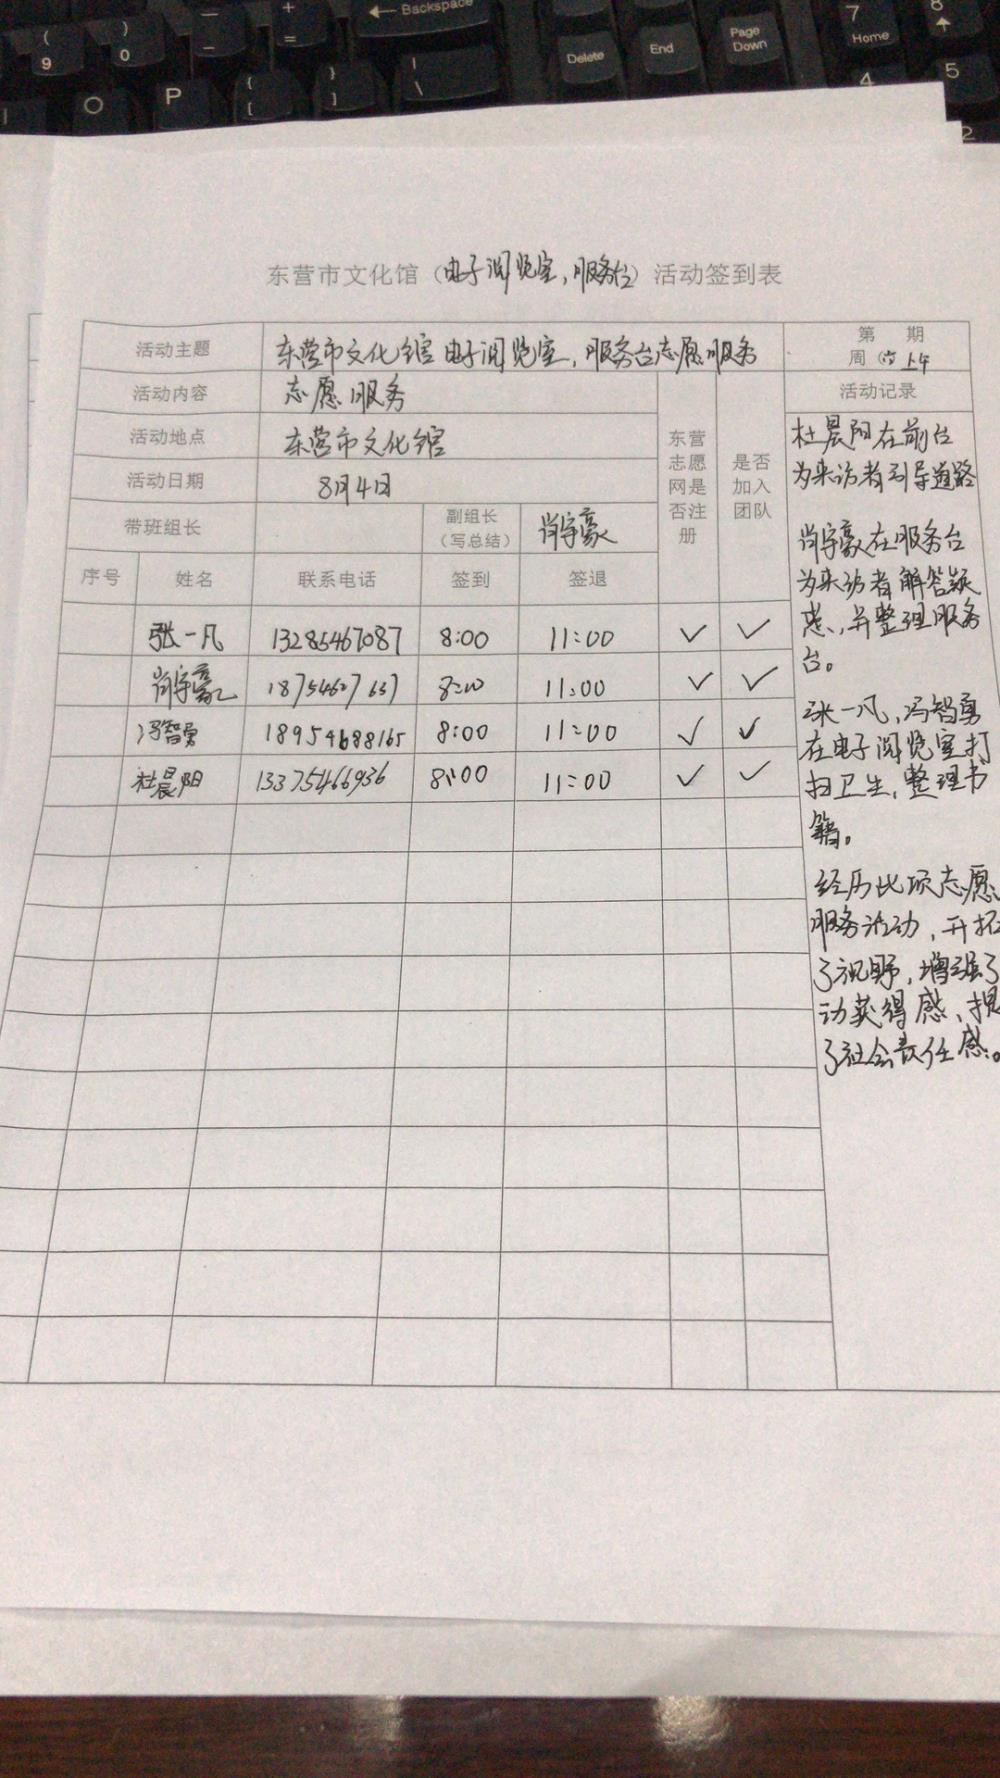 ← Backspace
( 9
) 0
— -
+ =
| \
Delete
End
Page Down
7 Home
8
4
5
2
O
P
{ [
} ]
东营市文化馆（电子阅览室，服务台）活动签到表
活动主题 东营市文化馆电子阅览室，服务台志愿服务 第 期
周（六）上午
活动内容 志愿服务 东营志愿网是否注册 是否加入团队 活动记录
活动地点 东营市文化馆
活动日期 8月4日
带班组长 副组长（写总结） 肖宇豪
序号 姓名 联系电话 签到 签退
张一凡 13285467087 8:00 11:00 ✓ ✓
肖宇豪 18754607637 8:00 11:00 ✓ ✓
冯智勇 18954688165 8:00 11:00 ✓ ✓
杜晨阳 13375466936 8:00 11:00 ✓ ✓
杜晨阳在前台
为来访者引导道路
肖宇豪在服务台
为来访者解答疑
惑，并整理服务
台。
张一凡，冯智勇
在电子阅览室打
扫卫生，整理书
籍。
经历此项志愿
服务活动，开拓
了视野，增强了
动获得感、提
了社会责任感。